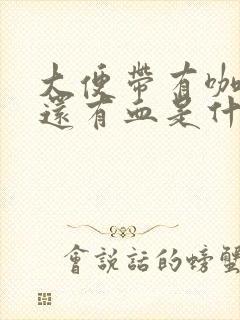 大便帶有咖
還有血是什
會說話的螃蟹